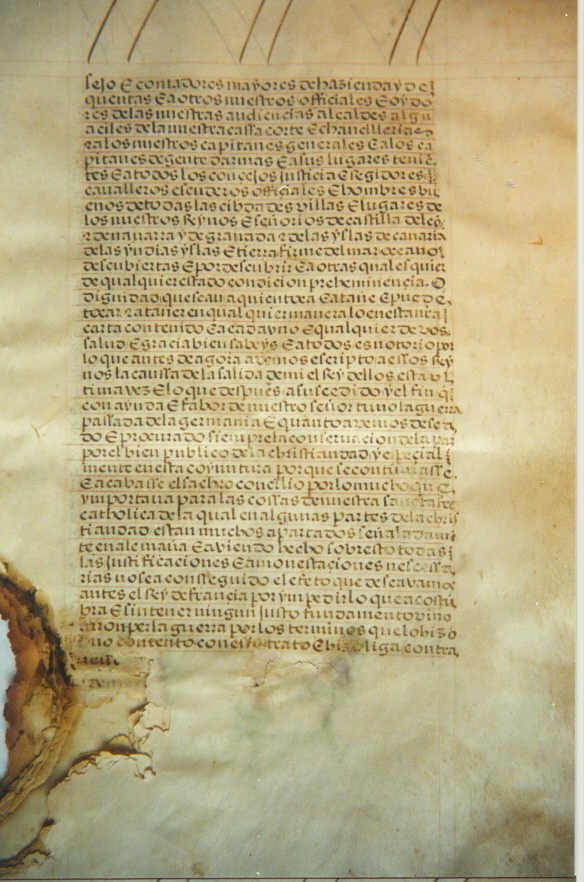 sejo E contadores mayores de hazienda y de
quentas E a otros nuestros officiales E oydo
res de las nuestras audiencias alcaldes algu
aciles de la nuestra cassa corte E chancilleria
a los nuestros capitanes generales E a los ca
pitanes de gente darmas E a sus lugares tenien
tes E a todos los concejos justicia E regidores
cavalleros escuderos officiales E hombres bu
enos de todas las cibdades villas E lugares de
los nuestros Reynos E señorios de castilla de leon
de navarra y de granada de las yslas de canaria
de las yndias yslas E tierra firme del mar oceano
descubiertas E por descubrir E a otras qualesquier
de qualquier estado condicion preheminencia O
dignidad que sean a quien toca E atañe E puede
tocar atañer en qualquier manera lo en esta nuestra
carta contenido E a cada uno E qualquier de vos
salud E gracia bien sabeys E a todos es notorio por
lo que antes de agora avemos escripto a essos Rey
nos la caussa de la salida de mi el Rey dellos esta ul
tima vez E lo que despues a suscedido y el fin que
con ayuda E fabor de nuestro señor tuvo la guerra
passada de la germania E quanto avemos desea
do E procurado siempre la conservacion de la paz
por el bien publico de la christiandad y especial
mente en esta coyuntura porque se continuasse
E acabasse el sacro concilio por lo mucho que
ymportava para las cossas de nuestra sancta fee
catholica de la qual en algunas partes de la chris
tiandad estan muchos apartados señaladamen
te en alemaña E aviendo hecho sobresto todas
las justificaciones E amonestaciones nescessa
rias no se a conseguido el efeto que deseavamos
antes el Rey de francia por ympedir lo que acostu
bra E sin tener ningun justo fundamento vino
a romper la guerra por los terminos que lo hizo
no contento con esto trato E hizo liga contra